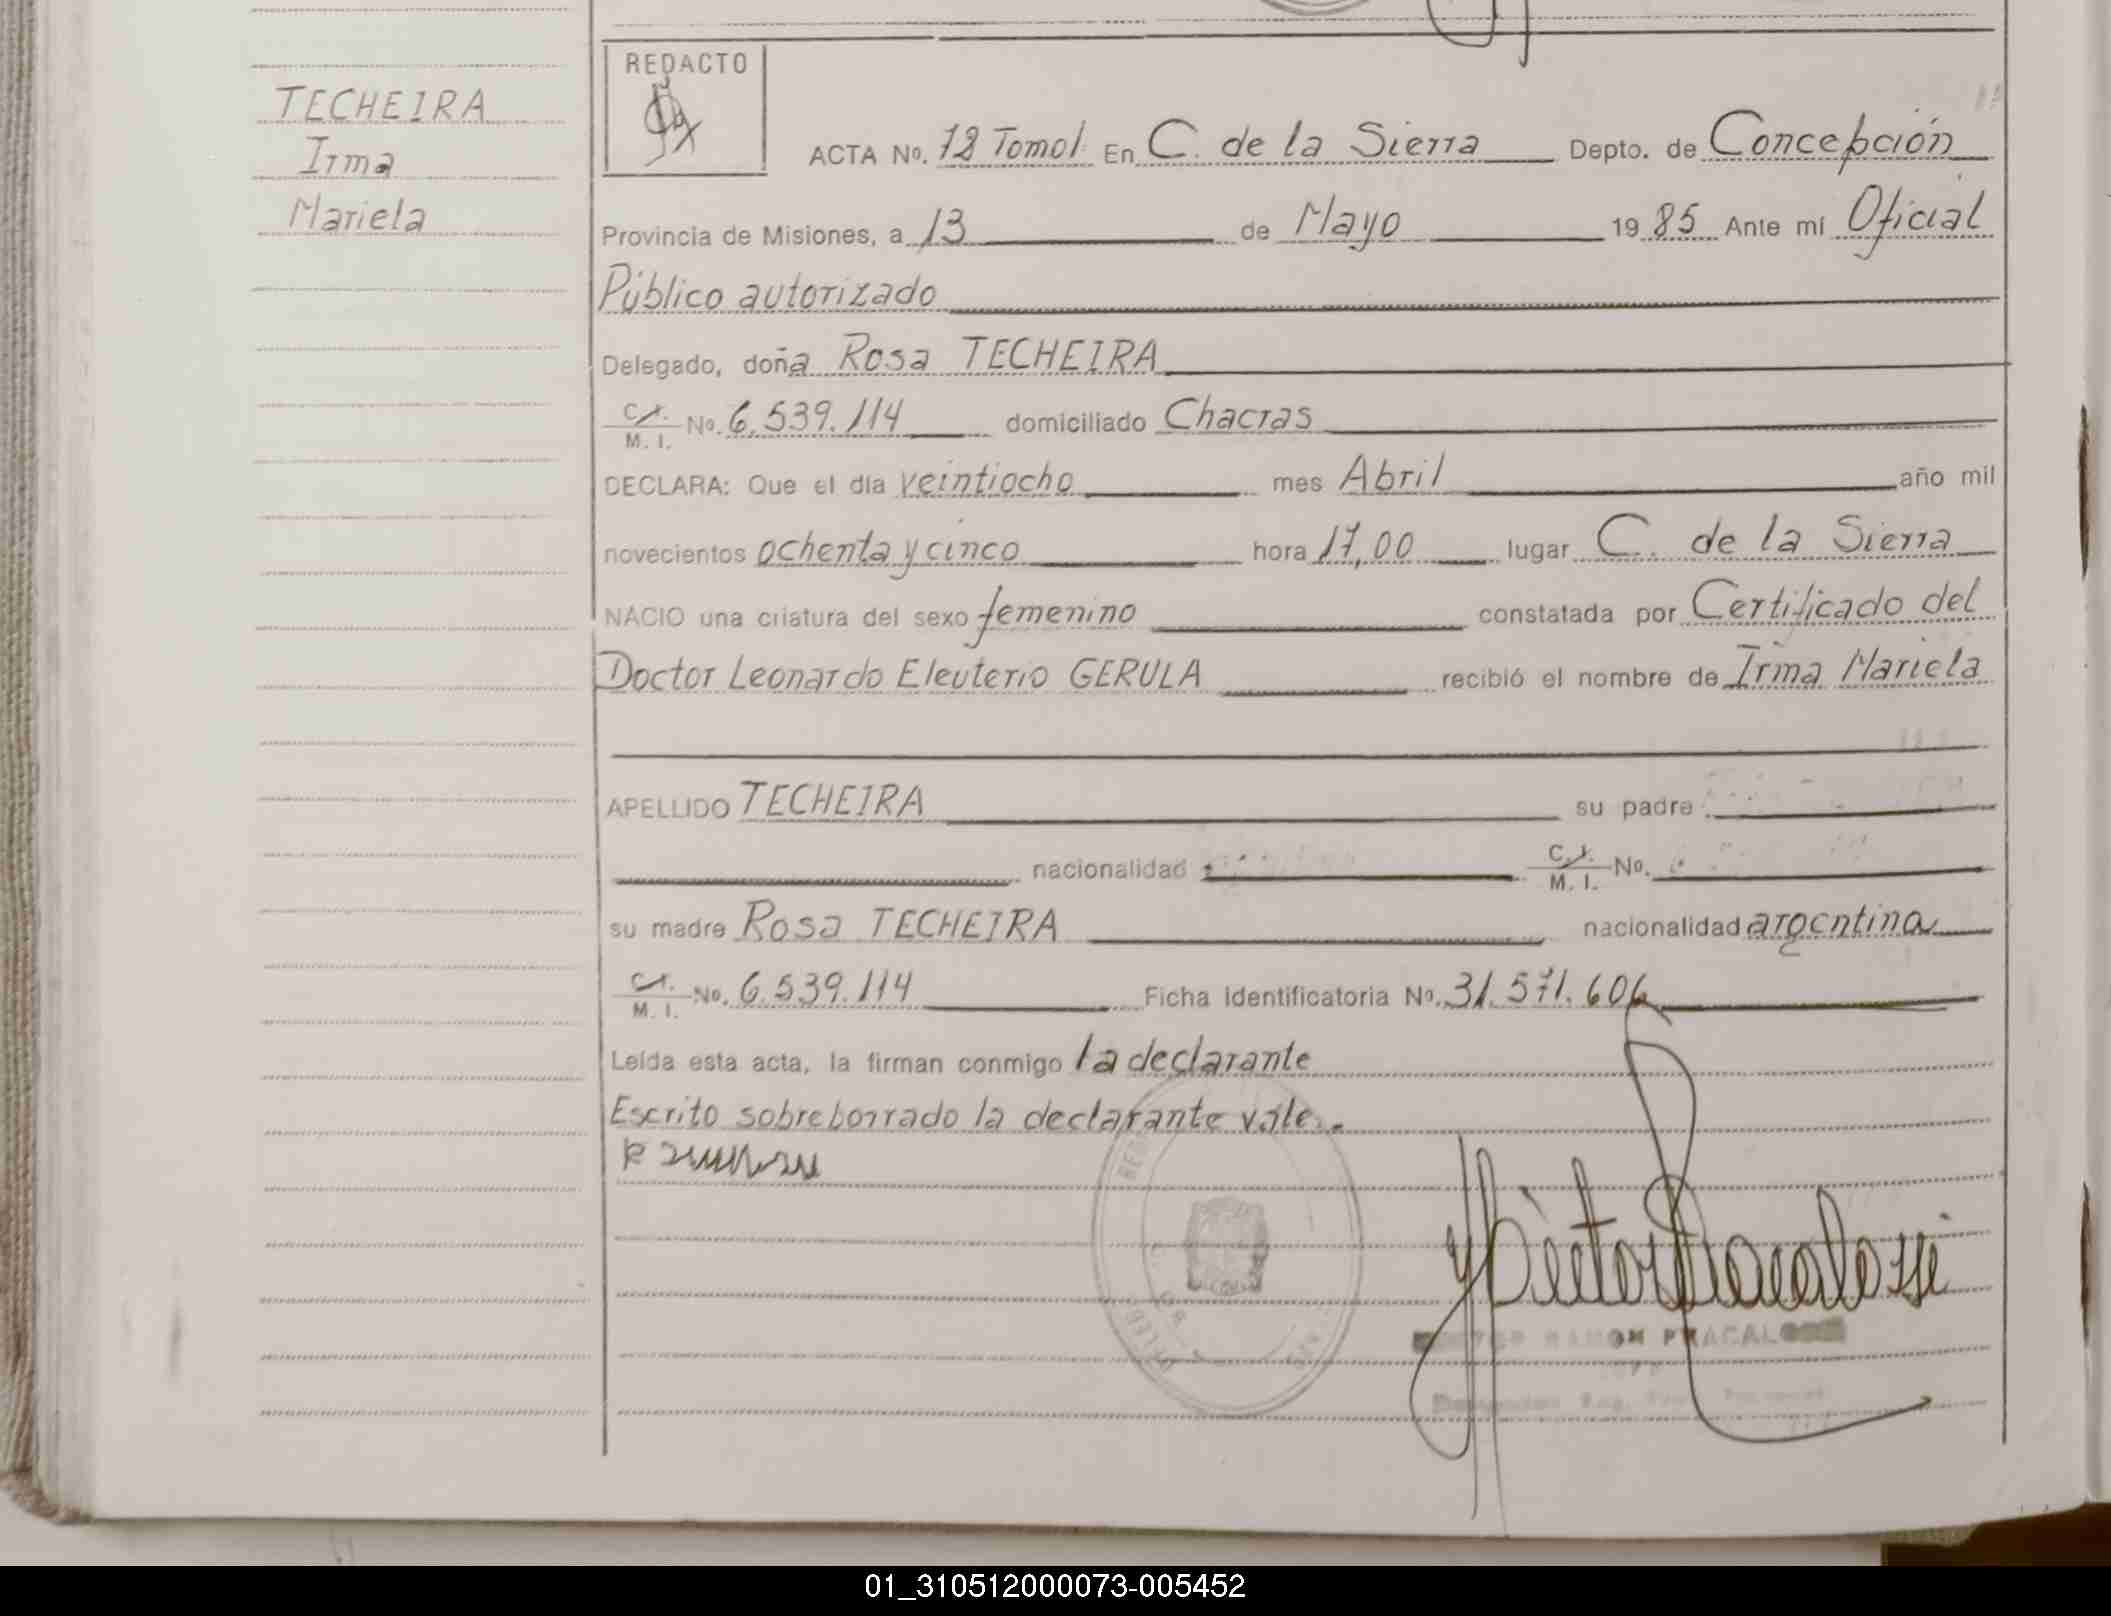 TECHEIRA
Irma
Mariela
REDACTO
ACTA No. 18 Tomo I En C. de la Sierra Depto. de Concepción
Provincia de Misiones, a 13 de Mayo 19 85 Ante mí Oficial
Público autorizado
Delegado, doña Rosa TECHEIRA
C.I. M. I. No. 6.539.114 domiciliado Chacras
DECLARA: Que el día veintiocho mes Abril año mil
novecientos ochenta y cinco hora 17,00 lugar C. de la Sierra
NACIO una criatura del sexo femenino constatada por Certificado del
Doctor Leonardo Eleuterio GERULA recibió el nombre de Irma Mariela
APELLIDO TECHEIRA su padre
nacionalidad C.I. M. I. No.
su madre Rosa TECHEIRA nacionalidad argentina
C.I. M. I. No. 6.539.114 Ficha identificatoria No. 31.571.606
Leída esta acta, la firman conmigo la declarante
Escrito sobreborrado la declarante vale.
RAMON PRACAL
01_310512000073-005452